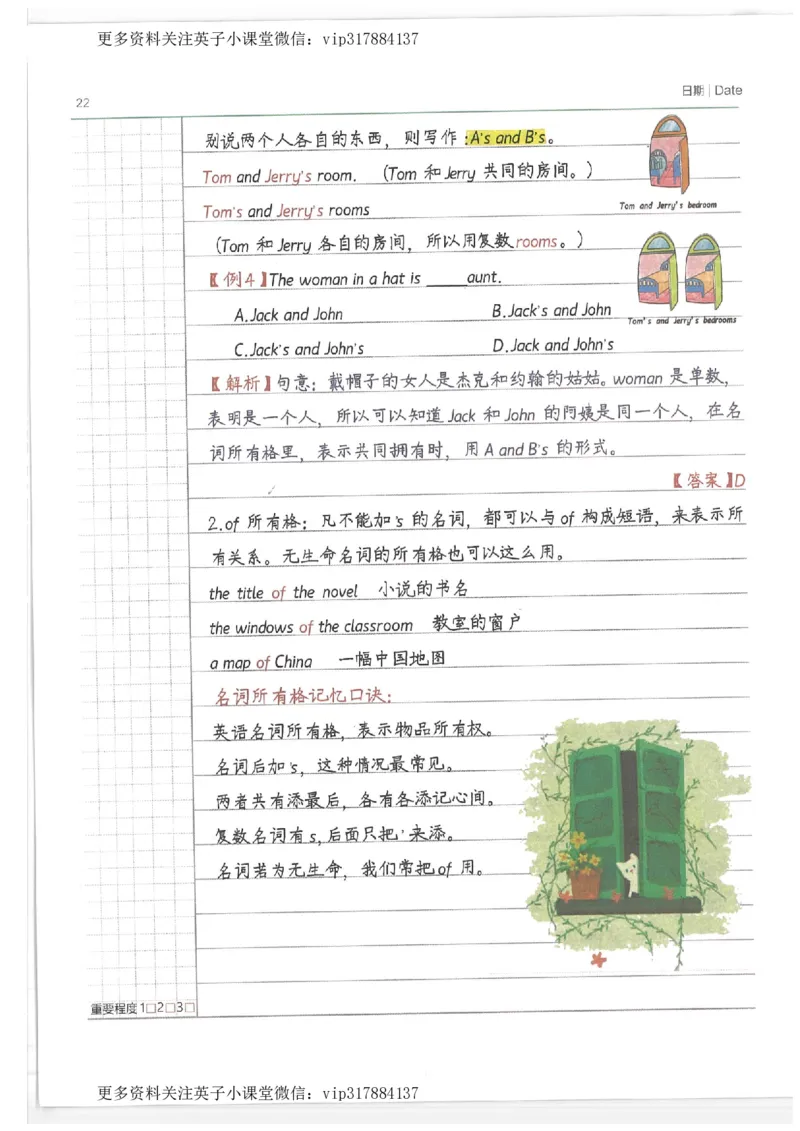 更多资料关注英子小课堂微信：vip317884137
日期 | Date
22
别说两个人各自的东西，则写作：A's and B's。
Tom and Jerry's room. （Tom 和 Jerry 共同的房间。）
Tom and Jerry's bedroom
Tom's and Jerry's rooms
（Tom 和 Jerry 各自的房间，所以用复数rooms。）
【例4】The woman in a hat is _____aunt.
A.Jack and John
B.Jack's and John
Tom's and Jerry's bedrooms
C.Jack's and John's
D.Jack and John's
【解析】句意：戴帽子的女人是杰克和约翰的姑姑。woman 是单数，
表明是一个人，所以可以知道 Jack 和 John 的阿姨是同一个人，在名
词所有格里，表示共同拥有时，用 A and B's 的形式。
【答案】D
2.of 所有格：凡不能加's 的名词，都可以与 of 构成短语，来表示所
有关系。无生命名词的所有格也可以这么用。
the title of the novel 小说的书名
the windows of the classroom 教室的窗户
a map of China 一幅中国地图
名词所有格记忆口诀：
英语名词所有格，表示物品所有权。
名词后加's，这种情况最常见。
两者共有添最后，各有各添记心间。
复数名词有s，后面只把'来添。
名词若为无生命，我们常把of 用。
重要程度 1□2□3□
更多资料关注英子小课堂微信：vip317884137